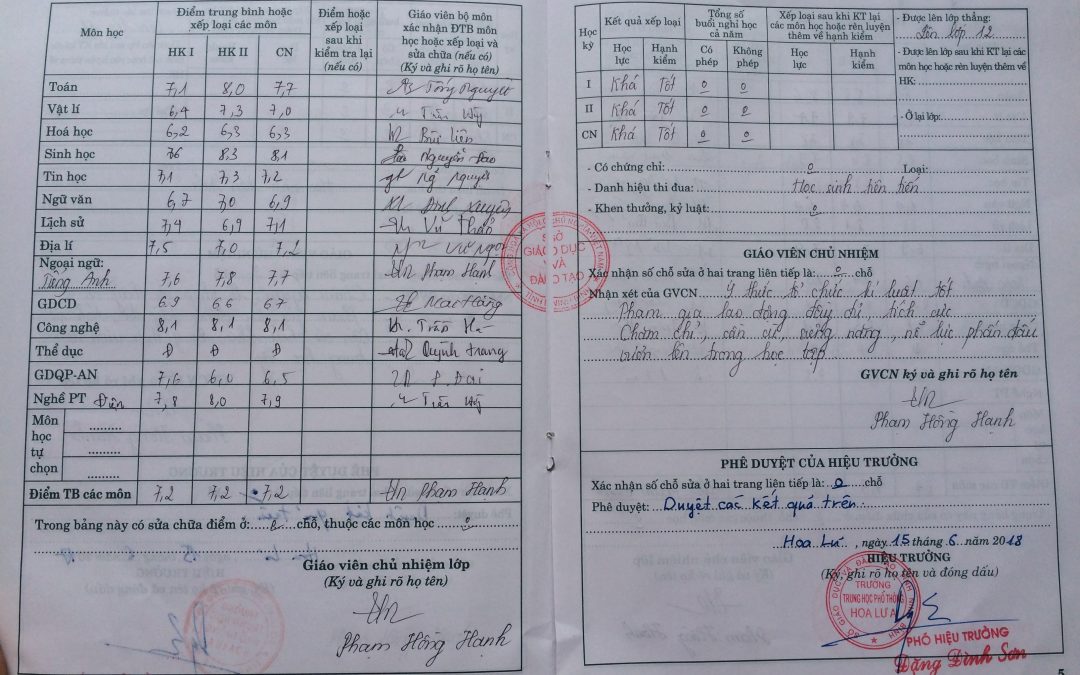 Môn học
Điểm trung bình hoặc
xếp loại các môn
HK I HK II CN
Điểm hoặc
xếp loại
sau khi
kiểm tra lại
(nếu có)
Giáo viên bộ môn
xác nhận ĐTB môn
học hoặc xếp loại và
sửa chữa (nếu có)
(Ký và ghi rõ họ tên)
Toán 7,1 8,0 7,7
Vật lí 6,4 7,3 7,0 Trần
Hoá học 6,2 6,3 6,3 Bùi Liên
Sinh học 76 8,3 8,1 Nguyễn
Tin học 7,1 7,3 7,2 Nguyệt
Ngữ văn 6,7 7,0 6,9
Lịch sử 7,4 6,9 7,1 Vũ Thảo
Địa lí 7,5 7,0 7,2
Ngoại ngữ:
Tiếng Anh 7,6 7,8 7,7 Phạm Hạnh
GDCD 69 66 67
Công nghệ 8,1 8,1 8,1 Trần
Thể dục Đ Đ Đ Quỳnh Trang
GDQP-AN 7,6 6,0 6,5
Nghề PT Điện 7,8 8,0 7,9 Trần
Môn
học
tự
chọn
Điểm TB các môn 7,2 7,2 7,2 Phạm Hạnh
Trong bảng này có sửa chữa điểm ở: 0 chỗ, thuộc các môn học 0
Giáo viên chủ nhiệm lớp
(Ký và ghi rõ họ tên)
Phạm Hồng Hạnh
SỞ
GIÁO DỤC
VÀ
ĐÀO TẠO
Học
kỳ
Kết quả xếp loại
Học
lực
Hạnh
kiểm
Tổng số
buổi nghỉ học
cả năm
Có
phép
Không
phép
Xếp loại sau khi KT lại
các môn học hoặc rèn luyện
thêm về hạnh kiểm
Học
lực
Hạnh
kiểm
I Khá Tốt 0 0
II Khá Tốt 0 0
CN Khá Tốt 0 0
- Được lên lớp thẳng:
Lên lớp 12
- Được lên lớp sau khi KT lại các
môn học hoặc rèn luyện thêm về
HK:
- Ở lại lớp:
- Có chứng chỉ: 0 Loại:
- Danh hiệu thi đua: Học sinh tiên tiến
- Khen thưởng, kỷ luật: 0
GIÁO VIÊN CHỦ NHIỆM
Xác nhận số chỗ sửa ở hai trang liên tiếp là: 0 chỗ
Nhận xét của GVCN Ý thức tổ chức kỉ luật tốt
Tham gia lao động đầy đủ, tích cực
Chăm chỉ, cần cù, siêng năng, nỗ lực phấn đấu
vươn lên trong học tập
GVCN ký và ghi rõ họ tên
Phạm Hồng Hạnh
PHÊ DUYỆT CỦA HIỆU TRƯỞNG
Xác nhận số chỗ sửa ở hai trang liên tiếp là: 0 chỗ
Phê duyệt: Duyệt các kết quả trên
Hoa Lư, ngày 15 tháng 6 năm 2018
HIỆU TRƯỞNG
(Ký, ghi rõ họ tên và đóng dấu)
TRƯỜNG
TRUNG HỌC PHỔ THÔNG
HOA LƯ A
PHÓ HIỆU TRƯỞNG
Đặng Đình Sơn
5